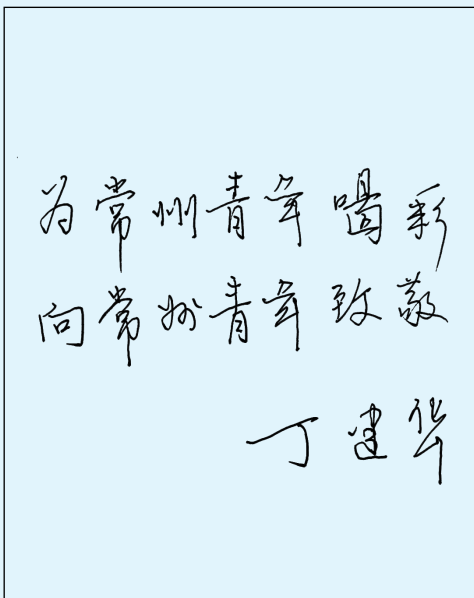 为常州青年喝彩
向常州青年致敬
丁建华